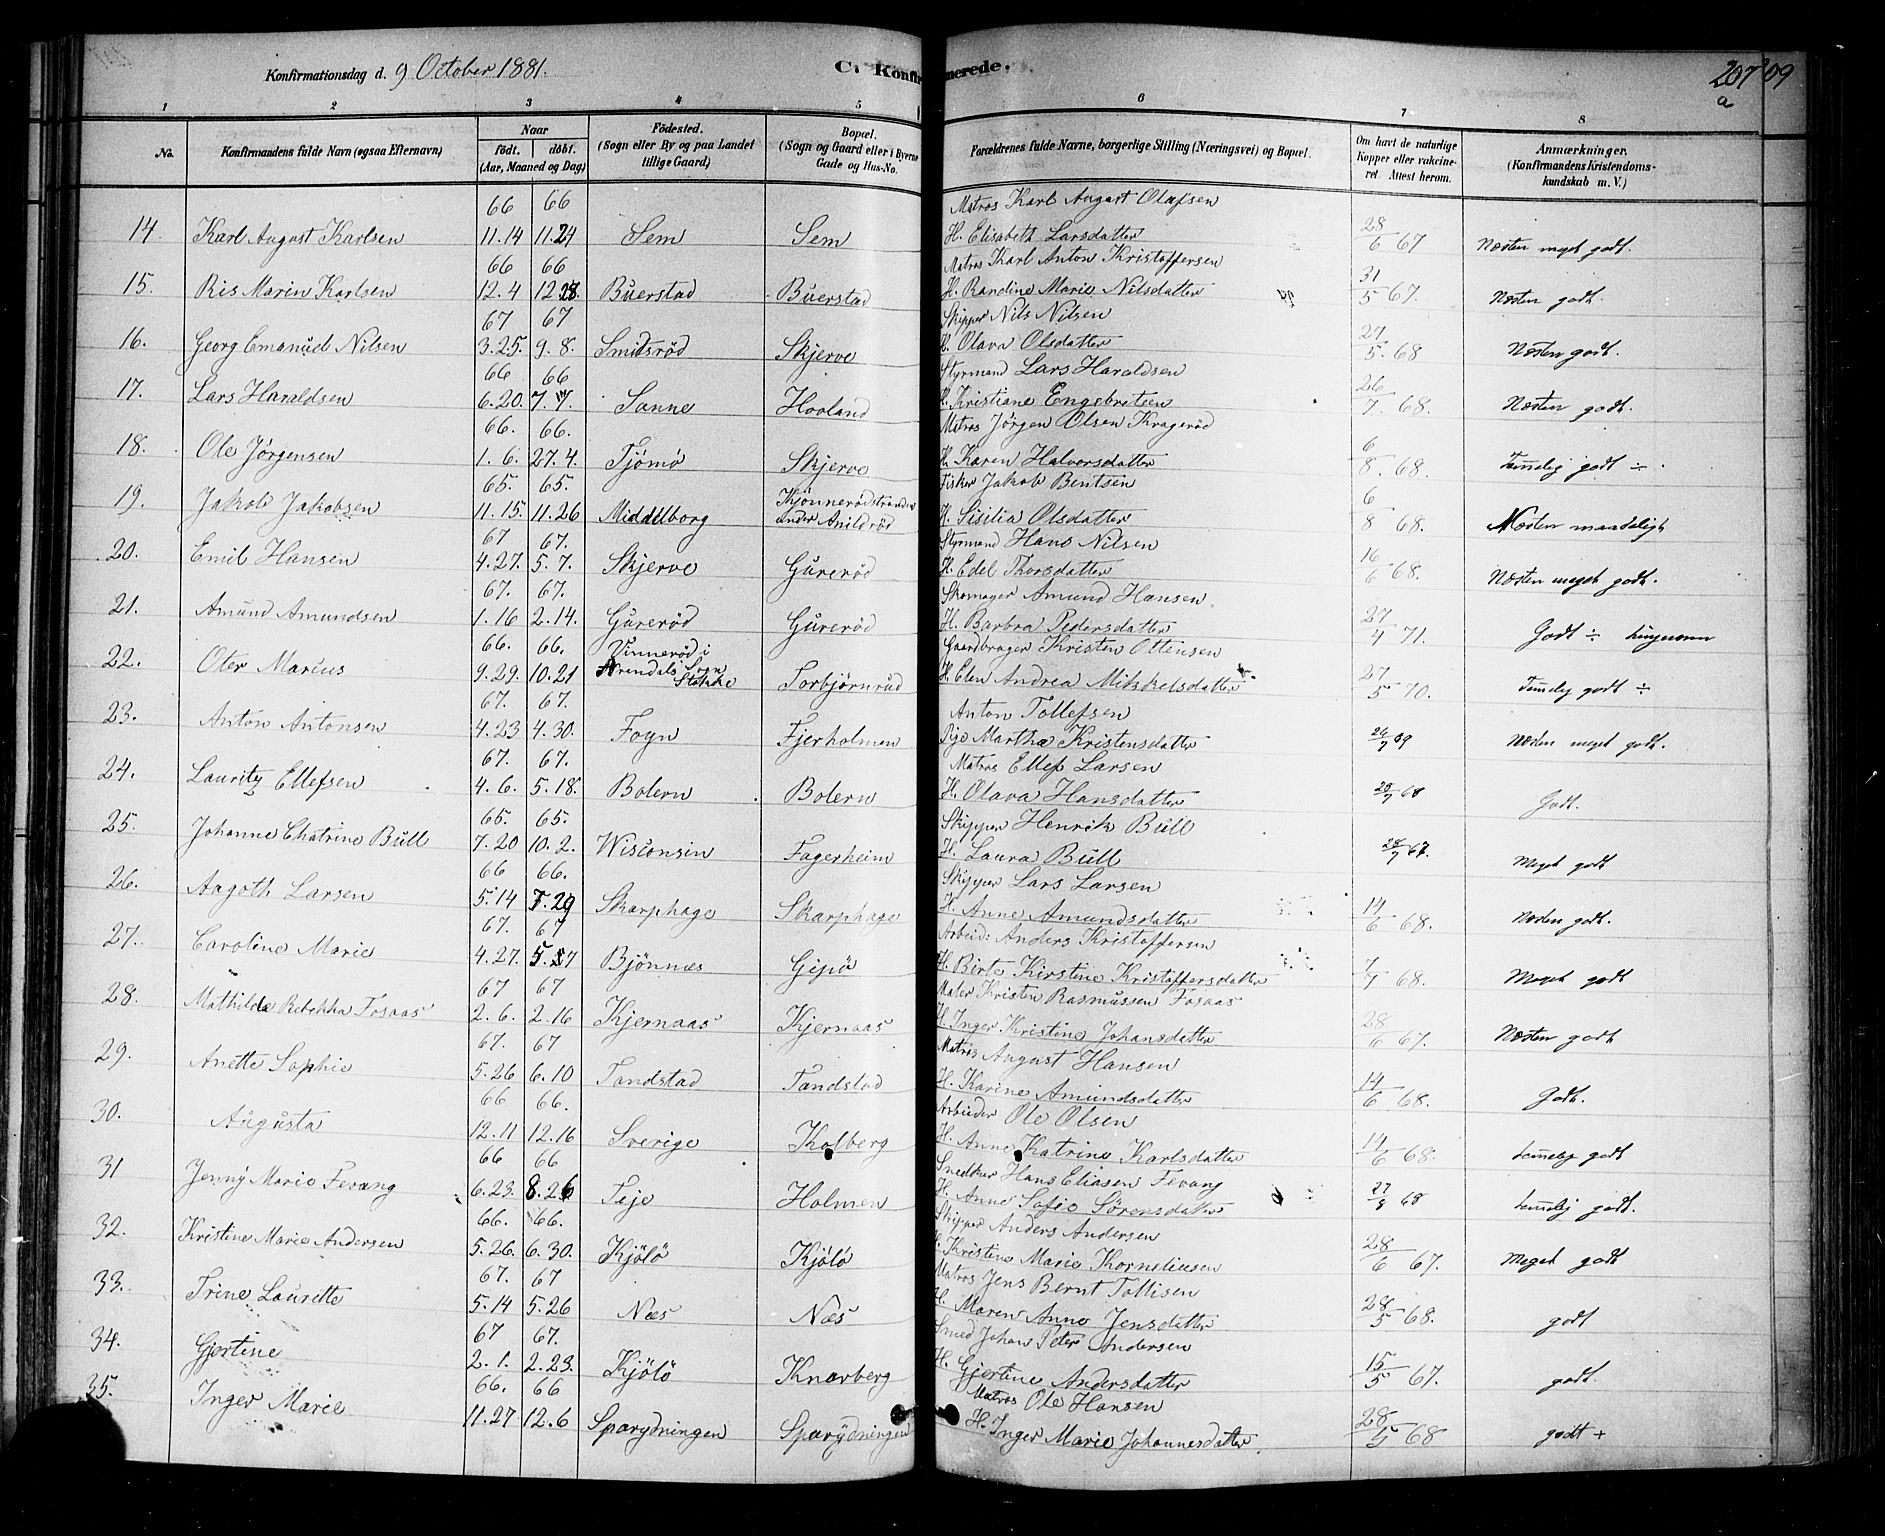 Konfirmationsdag d. 9 October 1881.
C. Konfirmerede.
207 09
a
1 2 3 4 5 6 7 8
No.
Konfirmandens fulde Navn (ogsaa Efternavn)
Naar
født. døbt.
(Aar, Maaned og Dag)
Fødested.
(Sogn eller By og paa Landet
tillige Gaard)
Bopæl.
(Sogn og Gaard eller i Byerne
Gade og Hus-No.
Forældrenes fulde Navne, borgerlige Stilling (Næringsvei) og Bopæl.
Om havt de naturlige
Kopper eller vakcine-
ret. Attest herom.
Anmærkninger.
(Konfirmandens Kristendoms-
kundskab m. V.)
66 66 Matros Karl August Olafsen
14. Karl August Karlsen 11.14 11.21 Sem Sem H. Elisabeth Larsdatter 28/6 67 Næsten meget godt.
66 66 Matros Karl Anton Kristoffersen
15. Ris Marin Karlsen 12.4 12.28. Buerstad Buerstad H. Randine Marie Nilsdatter 31/5 67. Næsten godt.
67 67 Skipper Nils Nilsen
16. Georg Emanuel Nilsen 3.25. 9.8. Smidsrød Skjerve H. Olava Olsdatter 27/5. 68 Næsten godt.
66 66 Styrmand Lars Haraldsen
17. Lars Haraldsen 6.20. 7.7. Sanne Hooland H. Kristiane Engebretsen 26/7. 68. Næsten godt.
66. 66. Matros Jørgen Olsen Kragerød
18. Ole Jørgensen 1.6. 27.4. Tjømø Skjerve H. Karen Halvorsdatter 6/8. 68. Temelig godt ÷
65. 65. Fisker Jakob Bentsen
19. Jakob Jakobsen 11.15. 11.26 Middelborg Kjønnerødstranden
under Anildrød H. Sisilia Olsdatter 6/8 68. Næsten maadeligt
67 67. Styrmand Hans Nilsen
20. Emil Hansen 4.27. 5.7. Skjerve Gurerød H. Edel Thorsdatter 16/6 68. Næsten meget godt.
67. 67. Skomager Amund Hansen
21. Amund Amundsen 1.16 2.14. Gurerød Gurerød H. Barbra Pedersdatter 27/4 71. Godt ÷
66. 66. Vinnerød i Gaardbruger Kristen Ottensen
22. Oter Marius 9.29. 10.21 Arendals Sogn
Stokke Torbjørnrød H. Elen Andrea Mikkelsdatter 27/5 70. Temelig godt ÷
67. 67. Anton Tollefsen
23. Anton Antonsen 4.23 4.30. Foyn Fjerholmen Pige Martha Kristensdatter 26/7 69 Næsten meget godt.
67. 67. Matros Ellef Larsen
24. Lauritz Ellefsen 4.6. 5.18. Bolern Bolern H. Olava Hansdatter 28/7 68 Godt.
65. 65. Skipper Henrik Bull
25. Johanne Chatrine Bull 7.20 10.2. Wisconsin Fagerheim H. Laura Bull 28/7 67. Meget godt
66 66. Skipper Lars Larsen
26. Aagoth Larsen 5.14 5.29 Skarphage Skarphage H. Anne Amundsdatter 14/6 68. Næsten godt.
67. 67 Arbeid: Anders Kristoffersen
27. Caroline Marie 4.27. 5.27 Bjönnæs Gipö H. Birte Kirstine Kristoffersdatter 7/7 68. Meget godt
67 67 Maler Kristen Rasmussen Fosaas
28. Mathilde Rebekka Fosaas 2.6. 2.16 Kjernaas Kjernaas H. Inger Kristine Johansdatter 28/6 67. Næsten godt
67. 67 Matros August Hansen
29. Anette Sophie 5.26 6.10 Tandstad Tandstad H. Karine Amundsdatter 14/6 68. Godt.
66 66. Arbeider Ole Olsen
30. Augusta 12.11 12.16 Sverige Kolberg H. Anne Katrine Karlsdatter 14/6 68. temelig godt
66 66 Snedker Hans Eliasen Fevang
31 Jenny Marie Fevang 6.23. 8.26 Teje Holmen H. Anne Sofie Sörensdatter 27/8 68 temelig godt.
66. 66. Skipper Anders Andersen
32. Kristine Marie Andersen 5.26. 6.30. Kjölö Kjölö H. Kristine Marie Korneliusen 28/6 67. Meget godt
67. 67 Matros Jens Bernt Tollisen
33. Trine Laurette 5.14 5.26 Næs Næs H. Maren Anne Jensdatter 28/5 68. godt
67 67. Smed Johan Peter Andersen
34. Gjertine 2.1. 2.23. Kjölö Knarberg H. Gjertine Andersdatter 15/5 67. godt.
66. 66 Matros Ole Hansen
35. Inger Marie 11.27 12.6 Sparydningen Sparydningen H. Inger Marie Johannesdatter. 28/5 68 godt +